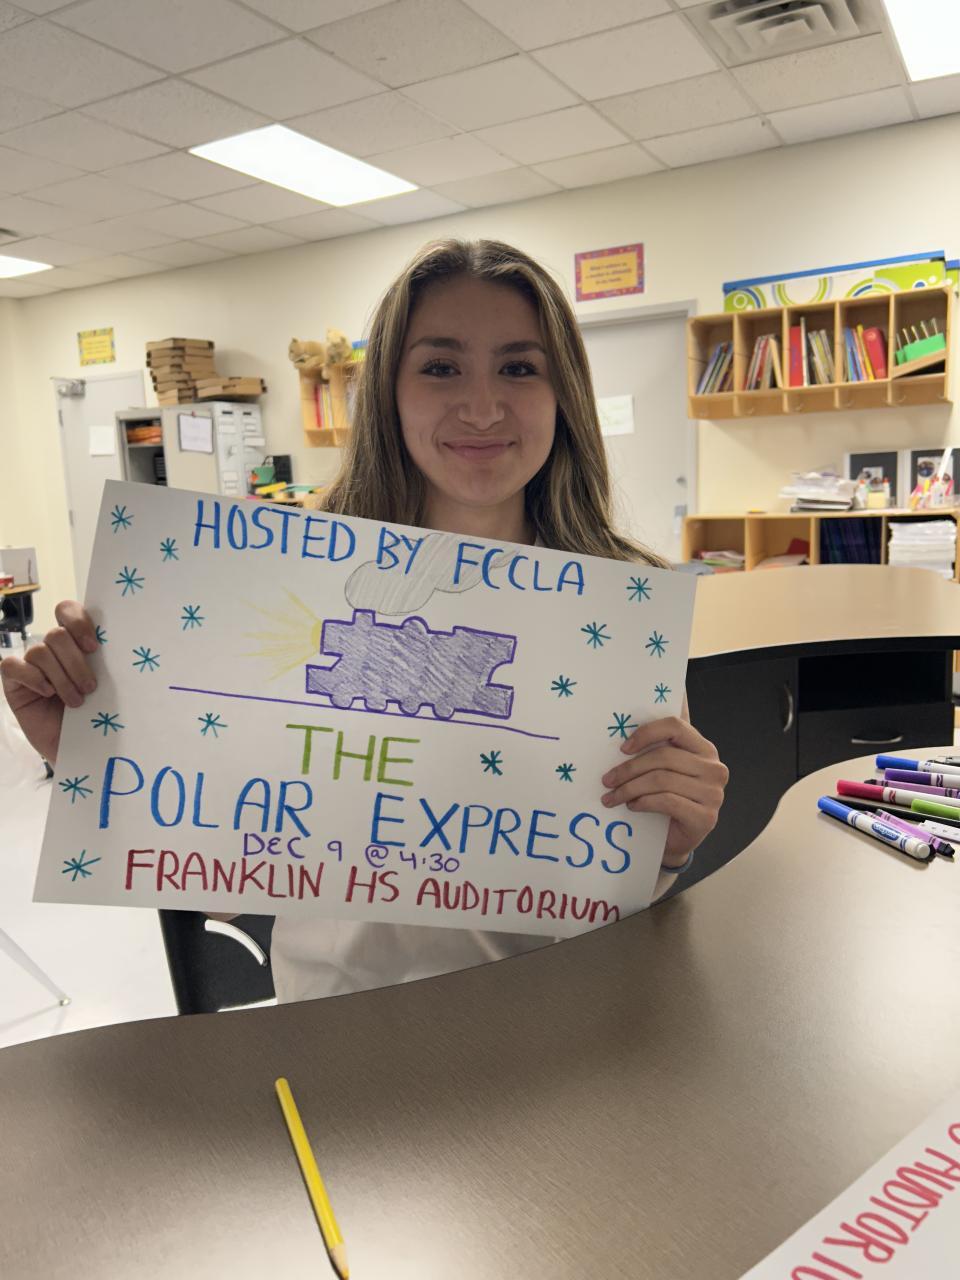 HOSTED BY FCCLA
THE
POLAR EXPRESS
DEC 9 @ 4:30
FRANKLIN HS AUDITORIUM
AUDITOR